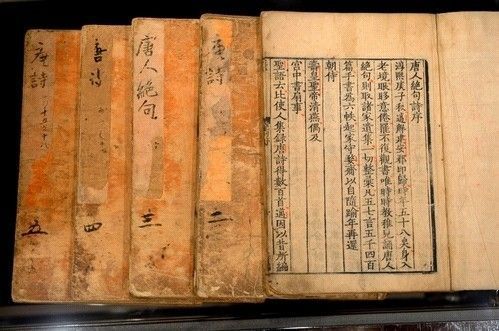 唐人絶句詩序
淳熙庚子秋邁解建安郡印歸時年五十八矣身入
老境眼眵意倦罷不復觀書唯時時教稚兒誦唐人
絶句則取諸家遺集一切整彙凡五七言五千四百
篇手書為六帙起家守婺齎以自隨踰年再還
朝侍
壽皇聖帝清燕偶及
宮中書扇事
聖語云比使人集録唐詩得數百首邁因以昔所編
唐詩
二
唐人絶句
三
唐詩
四
唐詩
五